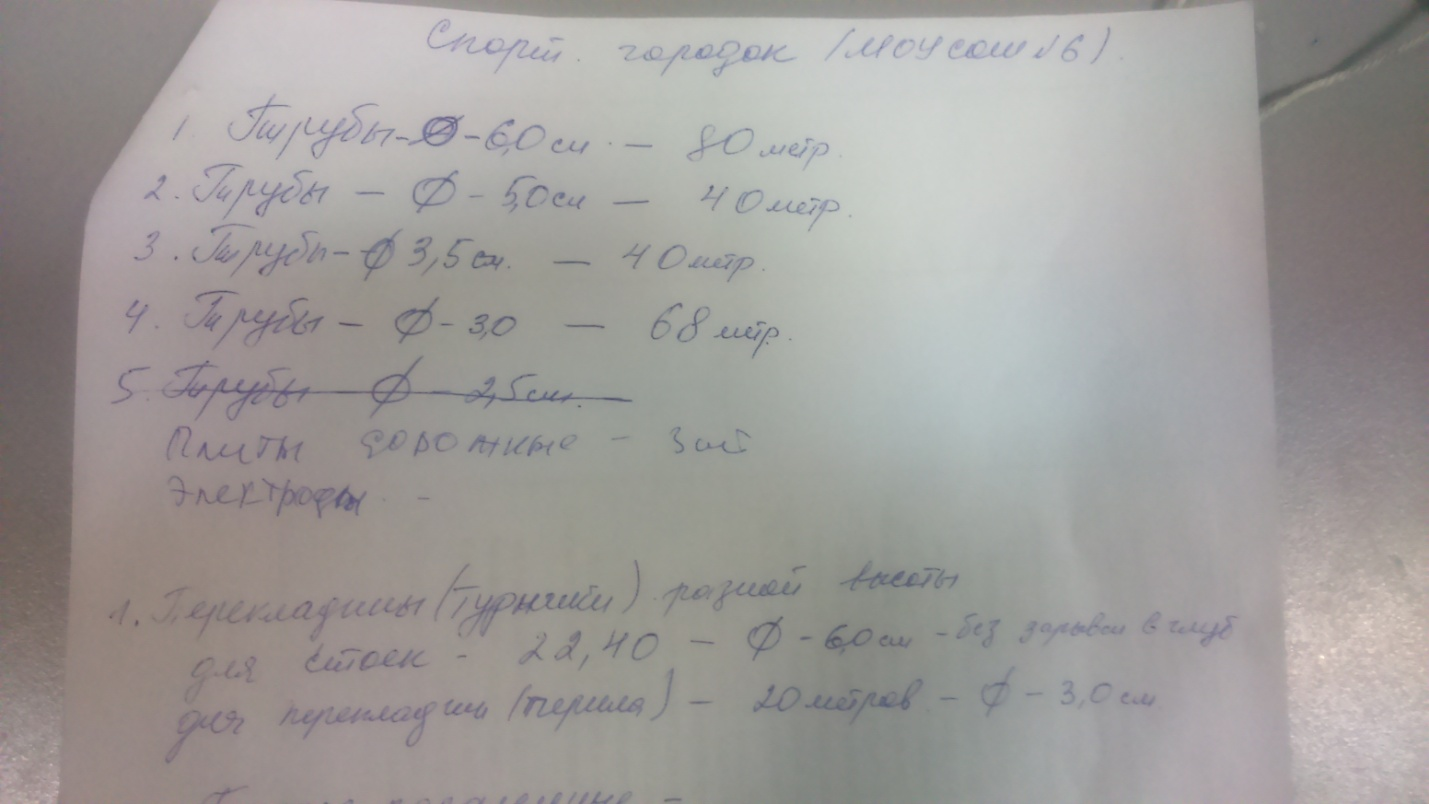 Спорт. городок (МОУ СОШ №6).
1. Трубы - Ø - 6,0 см. — 80 метр.
2. Трубы — Ø - 5,0 см — 40 метр.
3. Трубы - Ø 3,5 см. — 40 метр.
4. Трубы — Ø - 3,0 — 68 мтр.
5. Трубы — Ø - 2,5 см. —
Плиты дорожные - 3 шт
Электроды -
1. Перекладины (турники) разной высоты
для стоек - 22,40 — Ø - 6,0 см - без зарывки в глуб
для перекладин (перила) — 20 метров — Ø - 3,0 см